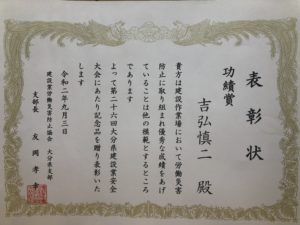 表彰状
功績賞
吉弘慎二 殿
貴方は建設作業場において労働災害
防止に取り組まれ優秀な成績をあげ
ていることは他の模範とするところ
であります
よって第二十六回大分県建設業安全
大会にあたり記念品を贈り表彰いた
します
令和二年九月三日
建設業労働災害防止協会 大分県支部
支部長 友岡孝幸